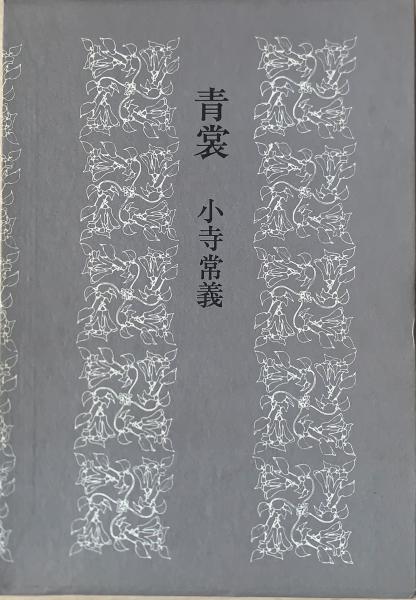 青裳
小寺常義